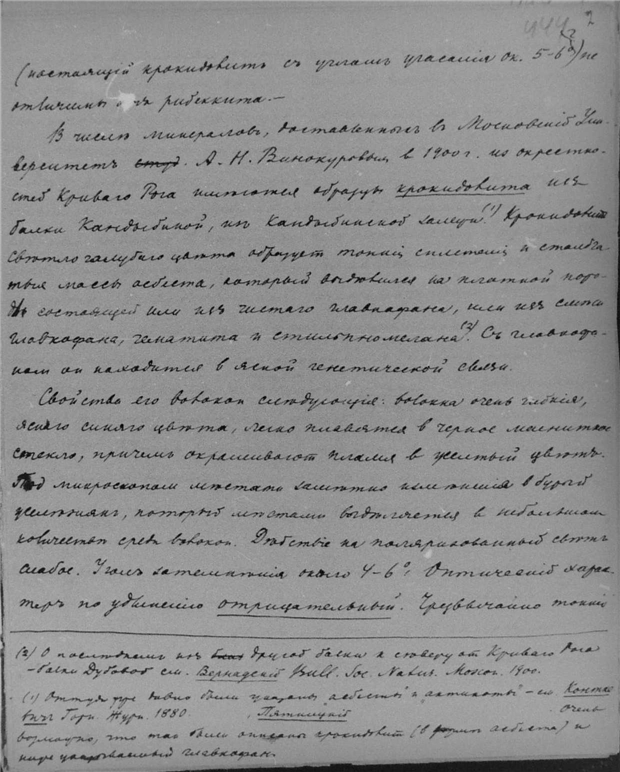 2
(настоящій крокидолитъ съ угломъ угасанія ок. 5-6°) не
отличимъ отъ рибекита.—
Въ числѣ минераловъ, доставленныхъ въ Московскій Уни-
верситетъ А. Н. Винокуровымъ в 1900 г. изъ окрестно-
стей Криваго Рога имѣются образцы крокидолита изъ
балки Кандыбиной, изъ Кандыбинской залежи (1) Крокидолитъ
свѣтло голубого цвѣта образуетъ тонкія сплетенія и столбча-
тыя массы асбеста, который выдѣлился на плотной поро-
дѣ состоящей или изъ чистаго главкофана, или изъ смѣси
главкофана, гематита и стильпномелана (2). Съ главкофа-
номъ он находится в ясной генетической связи.
Свойства его волокон слѣдующія: волокна очень гибкія,
яснаго синяго цвѣта, легко плавятся в черное магнитное
стекло, причемъ окрашивают пламя в желтый цвѣтъ.
Под микроскопом мѣстами замѣтно измѣненія в бурый
который мѣстами выдѣляется в небольшом
количествѣ среди волокон. Дѣйствіе на поляризованный свѣтъ
слабое. Уголъ затемнѣнія около 4-6°. Оптическій харак-
теръ по удлиненію отрицательный. Чрезвычайно тонкія
(2) О послѣднемъ изъ другой балки к сѣверу от Криваго Рога
- балки Дубовой см. Вернадскій Bull. Soc. Natur. Moscou. 1900.
(1) Оттуда уже давно были указаны асбесты и актинолиты - см. Контке-
вичъ Горн. Журн. 1880. Пятницкій Очень
возможно, что там были описаны крокидолит (в формѣ асбеста) и
ниже указываемый главкофан.